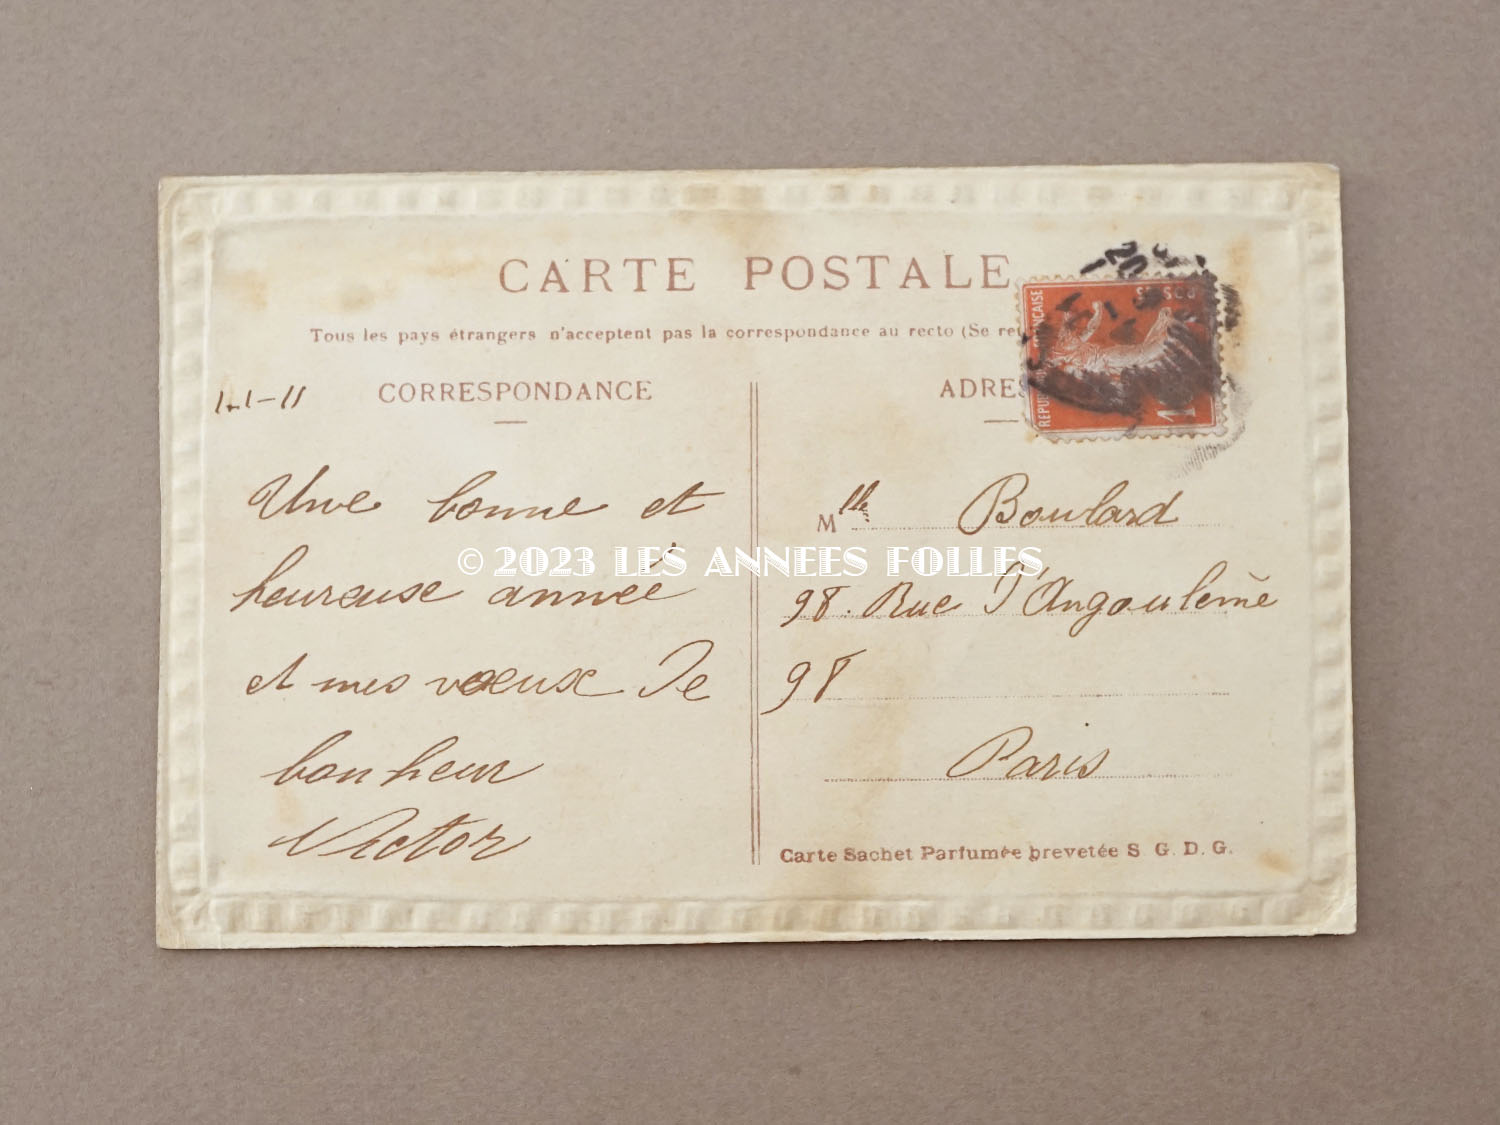 CARTE POSTALE
Tous les pays étrangers n'acceptent pas la correspondance au recto (Se
1-1-11
CORRESPONDANCE
Une bonne et
heureuse année
et mes voeux de
bonheur
Victor
ADRES
Mlle Boulard
98. Rue d'Angoulême
98
Paris
Carte Sachet Parfumée brevetée S. G. D. G.
POSTES
© 2023 LES ANNEES FOLLES